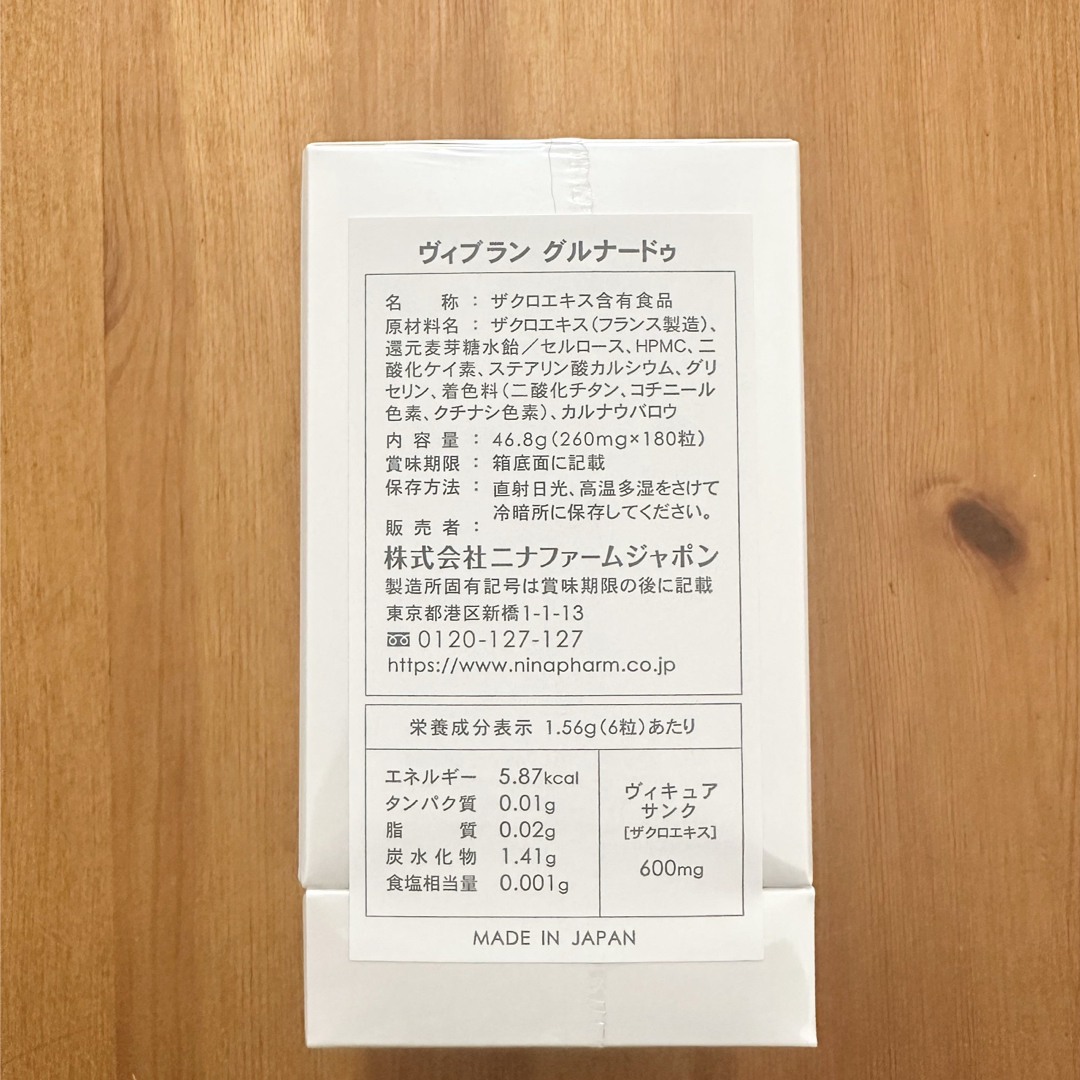 ヴィブラン グルナードゥ
名称：ザクロエキス含有食品
原材料名：ザクロエキス（フランス製造）、
還元麦芽糖水飴／セルロース、HPMC、二
酸化ケイ素、ステアリン酸カルシウム、グリ
セリン、着色料（二酸化チタン、コチニール
色素、クチナシ色素）、カルナウバロウ
内容量：46.8g（260mg×180粒）
賞味期限：箱底面に記載
保存方法：直射日光、高温多湿をさけて
冷暗所に保存してください。
販売者：
株式会社ニナファームジャポン
製造所固有記号は賞味期限の後に記載
東京都港区新橋1-1-13
0120-127-127
https://www.ninapharm.co.jp
栄養成分表示 1.56g（6粒）あたり
エネルギー 5.87kcal
タンパク質 0.01g
脂質 0.02g
炭水化物 1.41g
食塩相当量 0.001g
ヴィキュア
サンク
[ザクロエキス]
600mg
MADE IN JAPAN